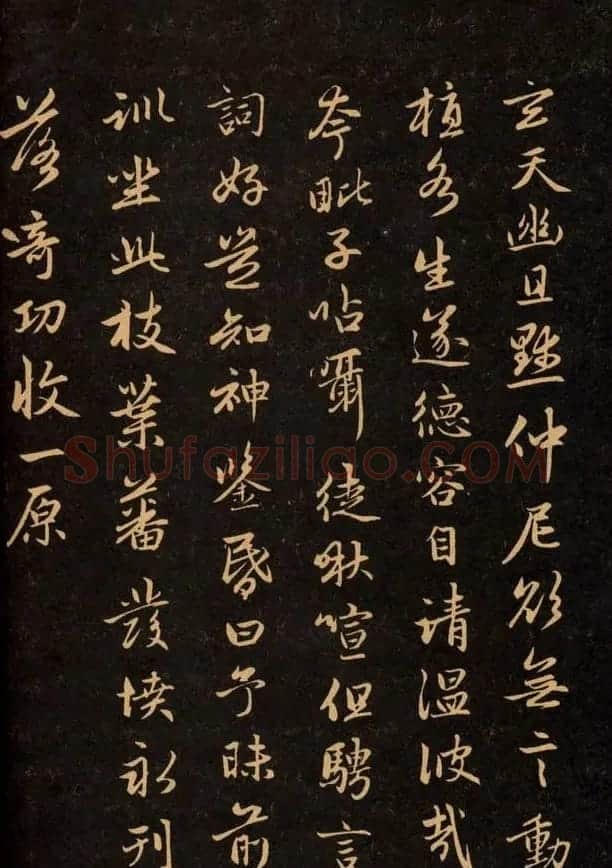 玄天幽且默仲尼欲無言動
植各生遂德容自清温彼哉
夸毗子呫囁徒啾喧但騁言
詞好豈知神鑒昏曰予昧前
訓坐此枝葉蕃發憤永刊
落奇功收一原
Shufaziliao.COM